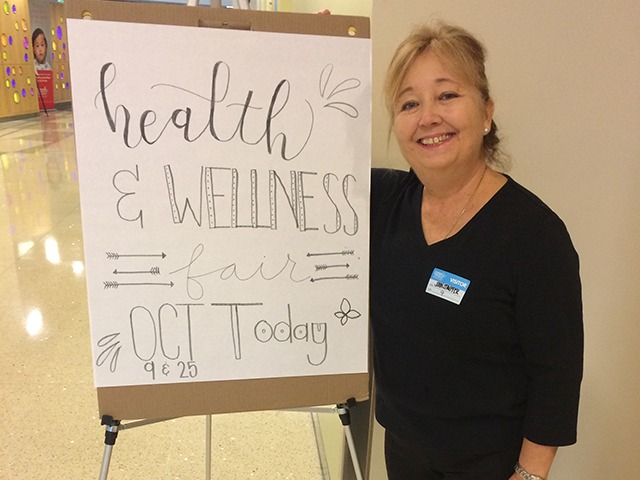 health
& WELLNESS
fair
OCT Today
9 & 25
VISITOR